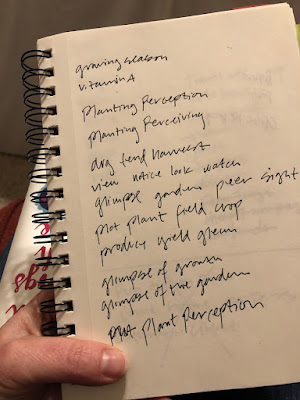 growing season
vitamin A
Planting Perception
planting Perceiving
dig tend harvest
view notice look watch
glimpse garden peer sight
plot plant field crop
produce yield glean
glimpse of growth
glimpse of the garden
plot plant perception